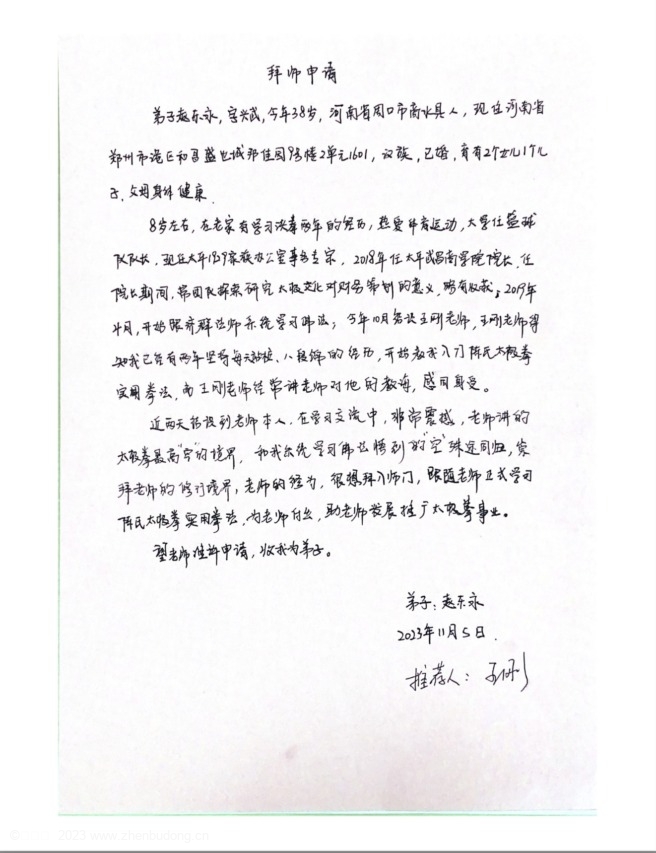 拜师申请
弟子赵东永，字兴武，今年38岁，河南省周口市商水县人，现住河南省
郑州市港区和昌盛世城邦佳园9号楼2单元1601，汉族，已婚，育有2个女儿1个儿
子，父母身体健康。
8岁左右，在老家有学习洪拳两年的经历，热爱体育运动，大学任篮球
队队长，现任太平1929家族办公室事务专家，2018年任太平武昌商学院院长，任
院长期间，带团队探索研究太极文化对财务策划的意义，略有收获；2019年
月，开始跟济群法师系统学习佛法；今年10月结识王刚老师，王刚老师得
知我已经有两年坚持每天站桩、八段锦的经历，开始教我入门陈氏太极拳
实用拳法，由王刚老师经常讲老师对他的教诲，感同身受。
近两天结识到老师本人，在学习交流中，非常震撼，老师讲的
太极拳最高"空"的境界，和我系统学习佛法悟到的"空"殊途同归，崇
拜老师的修行境界，老师的经为，很想拜入师门，跟随老师正式学习
陈氏太极拳实用拳法，为老师付出，助老师发展推广太极拳事业。
望老师准许申请，收我为弟子。
弟子：赵东永
2023年11月5日.
推荐人：王刚
2023 www.zhenbudong.cn